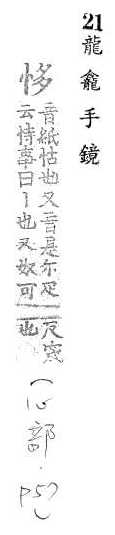 21
龍龕手鏡
恀
音紙怙也又音是尒疋
云恃事曰丨也又奴可
反
也
(心部.p57)